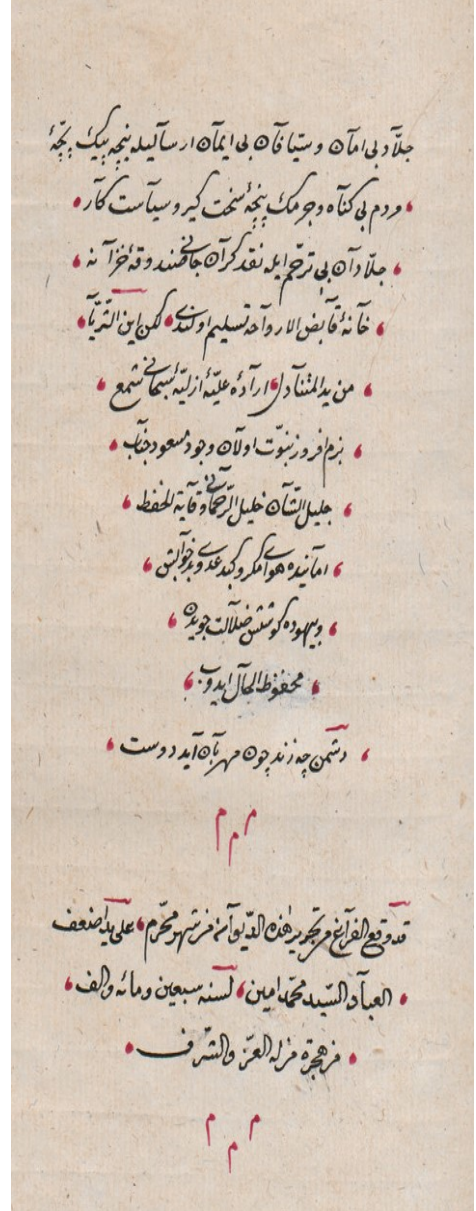 جلّاد بی امآن و سیّافآن بی ایمآن ارسآلیله نیچه بیك نیچّهٔ
مردم بی کنآه و جرمك پنچهٔ سخت کیر و سیآست کآر
جلّادآن بی ترحّم ایله نقد کرآن جانی صندوقهٔ خزآنه
خآنهٔ قآبض الارواحه تسلیم اولندی کمن این الثّریّآ
من ید المتنآول ارآدهٔ علیّهٔ ازلیّهٔ سبحآنی شمع
بزم افروز نبوّت اولآن وجود مسعود جنآب
جلیل الشّآن خلیل الرّحمآنی وقآیة الحفظ
امآنیده هوای مکر و کید عدوی بدخوآبش
و بیهوده کوشش ضلآلت جویدن
محفوظ الحآل ایدوب
دشمن چه زند چون مهربآن آید دوست
م م م
قد وقع الفرآغ من تحریر هذه الدّیوآن من شهر محرّم علی ید اضعف
العبآد السّید محمّد امین لسنه سبعین و مائه و الف
من هجرة من له العزّ و الشّرف
م م م